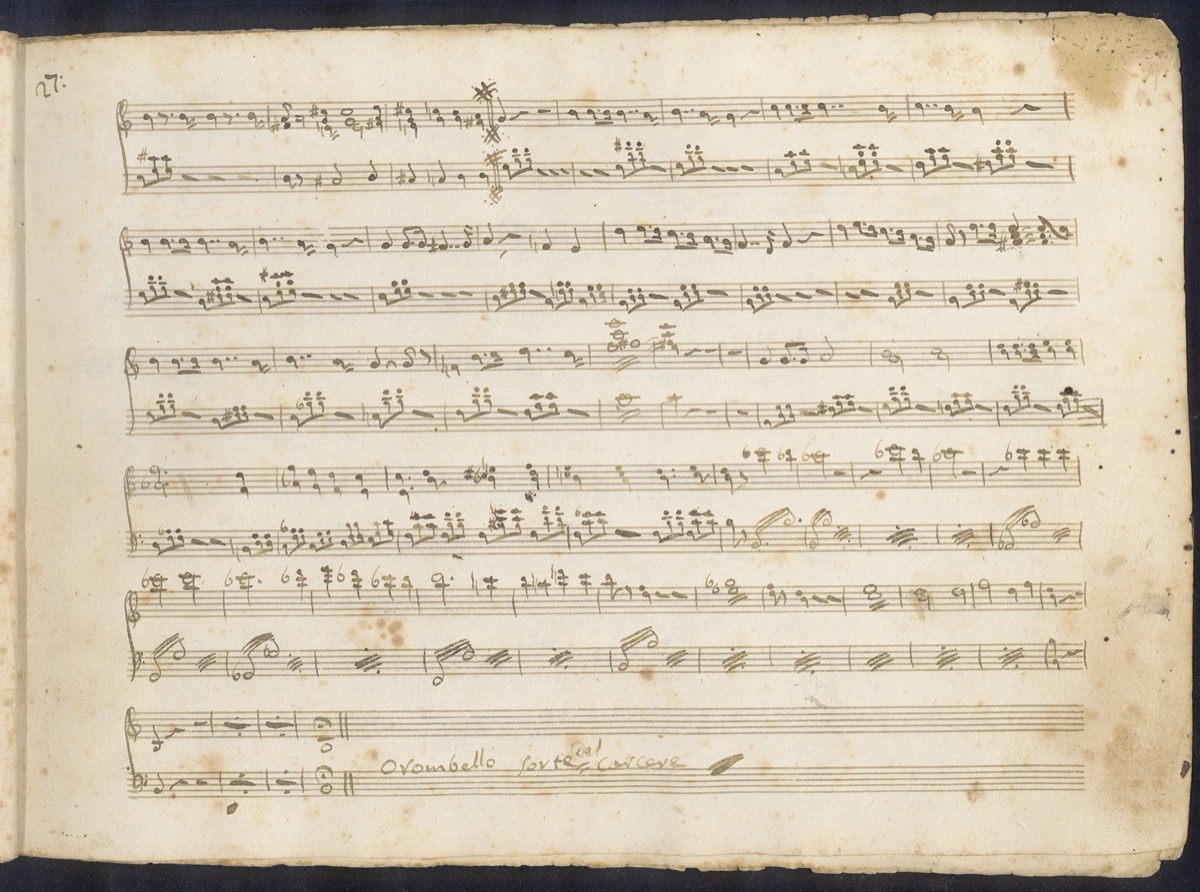 27:
Orombello sorte del Carcere